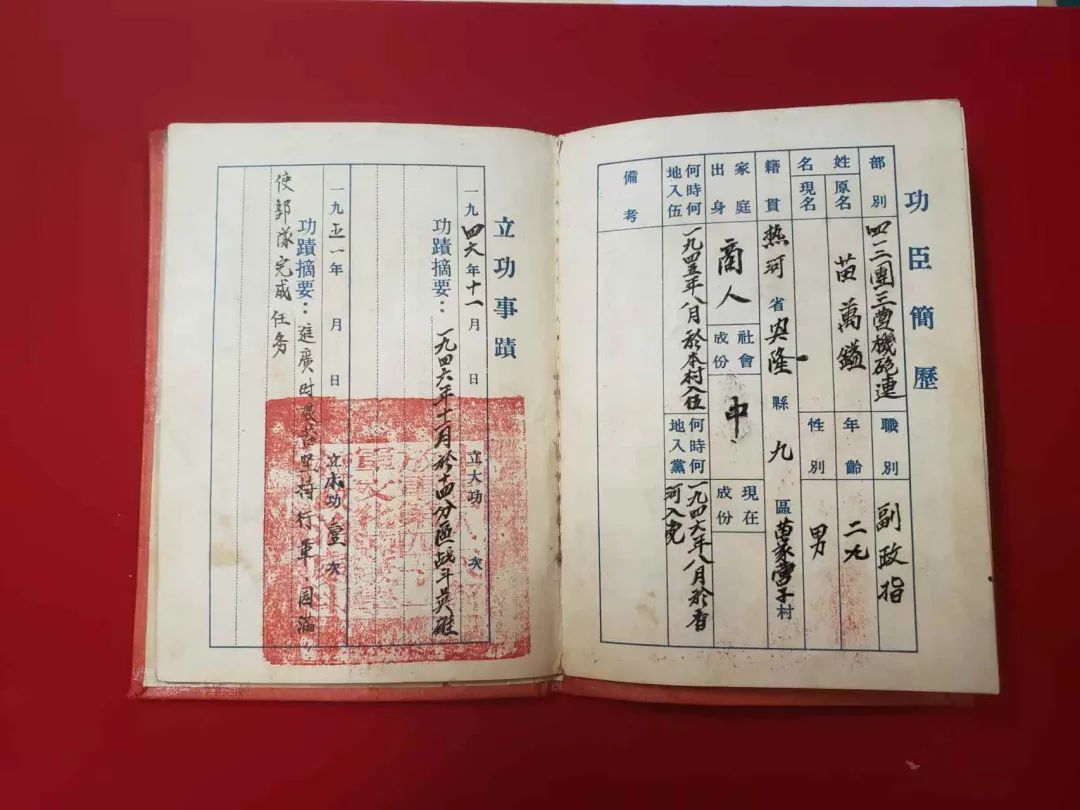 功臣簡歷
部別 四二團三營機砲連 職別 副政指
姓名 原名 苗萬鎰 年齡 二九
現名 性別 男
籍貫 热河省興隆縣九區苗家營子村
家庭出身 商人 社會成份 中 現在成份
何時何地入伍 一九四五年八月於本村入伍 何時何地入黨 一九四六年八月於香河入党
備考
立功事蹟
一九四六年十一月 日 立大功 次
功蹟摘要：一九四六年十一月於十四分區战斗英雄
一九五一年 月 日 立功壹次
功蹟摘要：進廣时艰苦坚持行軍，圆滿
使部隊完成任务